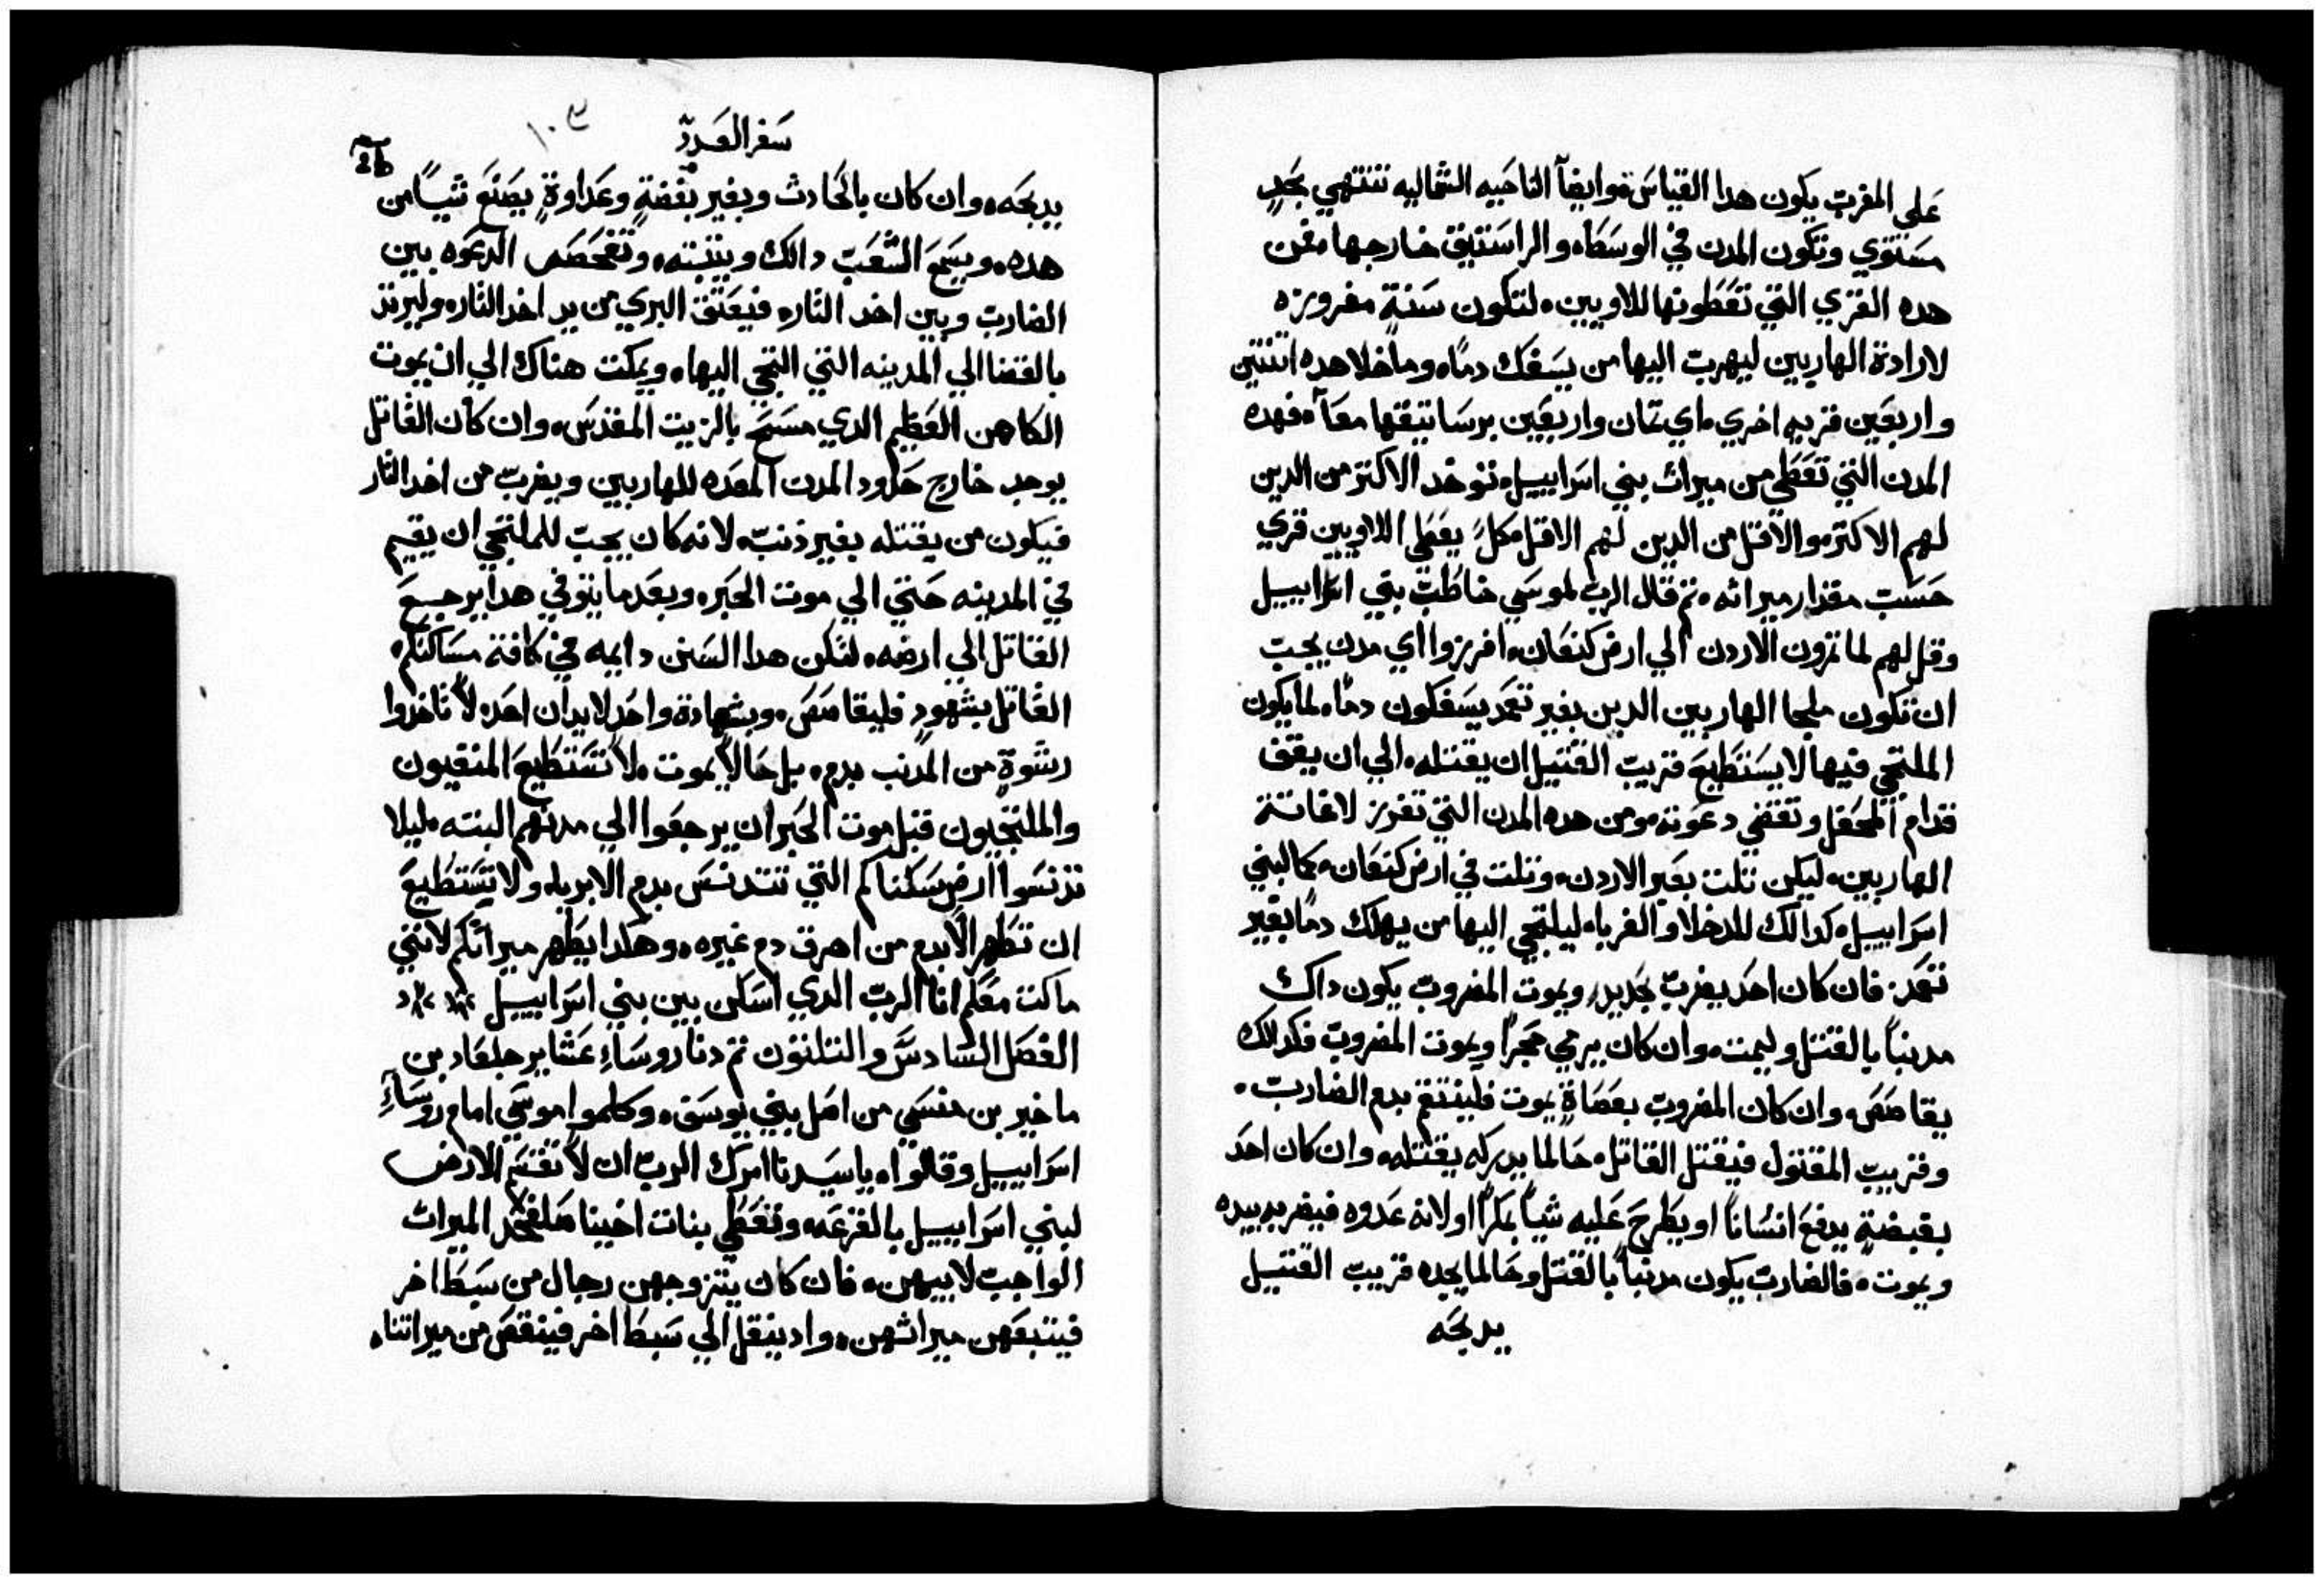 على المغرب يكون هدا القياس وايضاً الناحيه الشماليه تنتهي بحدٍ
مستوي وتكون المدن في الوسط والراستيق خارجها فمن
هده القري التي تعطونها للاويين لتكون ستة مفروزه
لارادة الهاربين ليهرب اليها من يسفك دماً وما خلا هده اتنتين
واربعين قريه اخري اي تمان واربعين برساتيقها معاً فهده
المدن التي تعطي من ميرات بني اسراييل توخد الاكتر من الدين
لهم الاكتر والاقل من الدين لهم الاقل كلً يعطي اللاويين قري
حسب مقدار ميراثه تم قال الرب لموسي خاطب بني اسراييل
وقل لهم لما تمرون الاردن الي ارض كنعان افرزوا اي مدن يجب
ان تكون ملجا الهاربين الدين بغير تعمد يسفكون دماً لما يكون
الملتجي فيها لا يستطيع قريب القتيل ان يقتله الي ان يقف
قدام المحفل وتقضي دعوته ومن هده المدن التي تفرز لاغاتة
الهاربين ليكن تلت بعبر الاردن وتلت في ارض كنعان كما لبني
اسراييل كدالك للدخلا والغربا ليلتجي اليها من يهلك دماً بغير
تعمد فان كان احد يضرب بحديدٍ ويموت المضروب يكون داك
مدنباً بالقتل وليمت وان كان يرمي حجراً ويموت المضروب فكدلك
يقاصص وان كان المضروب بعصاةٍ يموت فلينتقم بدم الضارب
وقريب المقتول فيقتل القاتل حالما يدركه يقتله وان كان احد
بقبضةٍ يدفع انساناً او يطرح عليه شياً بمكراً او لانه عدوه فيضر بيديه
ويموت فالضارب يكون مدنباً بالقتل وحالما يجده قريب القتيل
يدبحه
سفر العدد
١٠٣
يدبحه وان كان بالحادث وبغير بغضةٍ وعداوةٍ يصنع شياً من
هده ويسمع الشعب دالك ويتبته وتفحص الدعوه بين
الضارب وبين اخد التار فيعتق البري من يد اخد التار وليرتد
بالقضا الي المدينه التي التجي اليها ويمكت هناك الي ان يموت
الكاهن العظيم الدي مسح بالزيت المقدس وان كان القاتل
يوجد خارج حدود المدن المعده للهاربين ويضرب من اخد التار
فيكون من يقتله بغير ذنب لانه كان يجب للملتجي ان يقيم
في المدينه حتي الي موت الحبر وبعد ما يتوفي هدا يرجع
القاتل الي ارضه لتكن هدا السنن دايمه في كافة مساكنكم
القاتل بشهودٍ فليقاصص وبشهادة واحد لا يدان احد لا تاخدوا
رشوةٍ من المدنب بدم بل حالاً يموت لا تستطيع المنفيون
والملتجيون قبل موت الحبر ان يرجعوا الي مدنهم البته ليلا
تدنسوا ارض سكناكم التي تتدنس بدم الابريا ولا تستطيع
ان تطهر الا بدم من اهرق دم غيره وهكدا يطهر ميراتكم لانني
ماكت معكم انا الرب الدي اسكن بين بني اسراييل
الفصل السادس والتلتون تم دنا روساءِ عشاير جلعاد بن
ماخير بن منسي من اصل بني يوسف وكلموا موسي امام روساءِ
اسراييل وقالوا يا سيدنا امرك الرب ان لا تقسم الارض
لبني اسراييل بالقرعه وتعطي بنات اخينا صلفحد الميرات
الواجب لابيهن فان كان يتزوجهن رجال من سبط اخر
فيتبعهن ميراتهن واد ينقل الي سبط اخر فينقص من ميراتنا